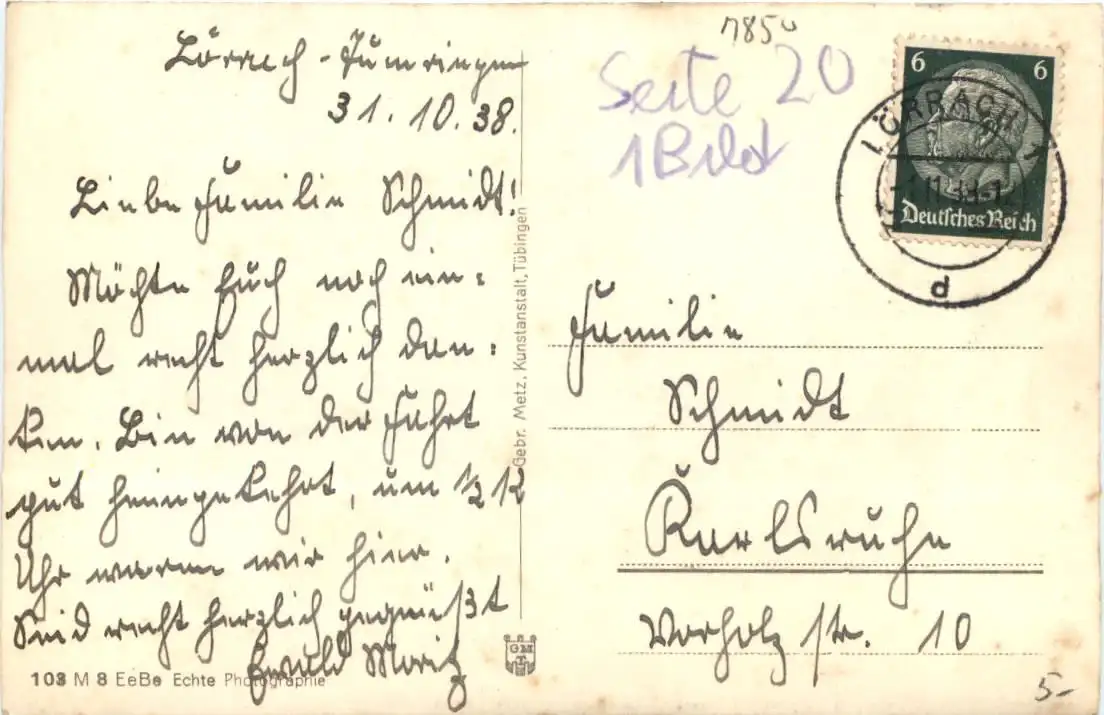 Lörrach-Tumringen
31. 10. 38.
Liebe Familie Schmidt!
Möchte Euch noch ein=
mal recht herzlich dan=
ken. Bin von der Fahrt
gut heimgekehrt, um ½ 12
Uhr waren wir hier.
Seid recht herzlich gegrüßt
Ewald Moritz
103 M 8 EeBe Echte Photographie
Gebr. Metz, Kunstanstalt, Tübingen
GMT
n850
Seite 20
1 Bild
6 6
Deutsches Reich
LÖRRACH 1
d
Familie
Schmidt
Karlsruhe
Vorholzstr. 10
5-